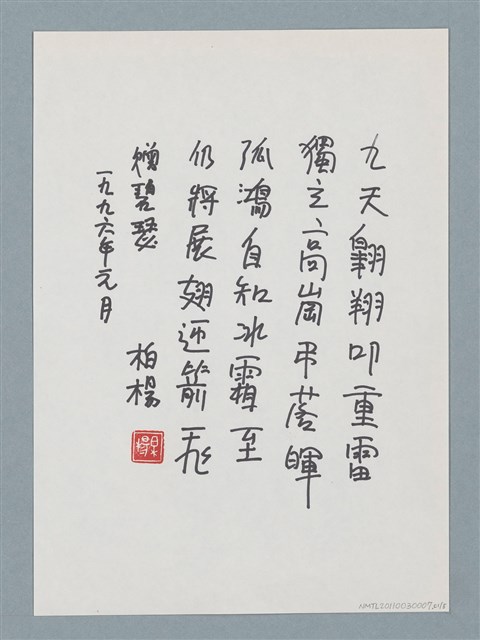 九天翱翔叩重雷
獨立高崗弔落暉
孤鴻自知冰霜至
仍將展翅迎箭飛
贈碧瑟
一九九六年元月
柏楊
NMTL20110030007